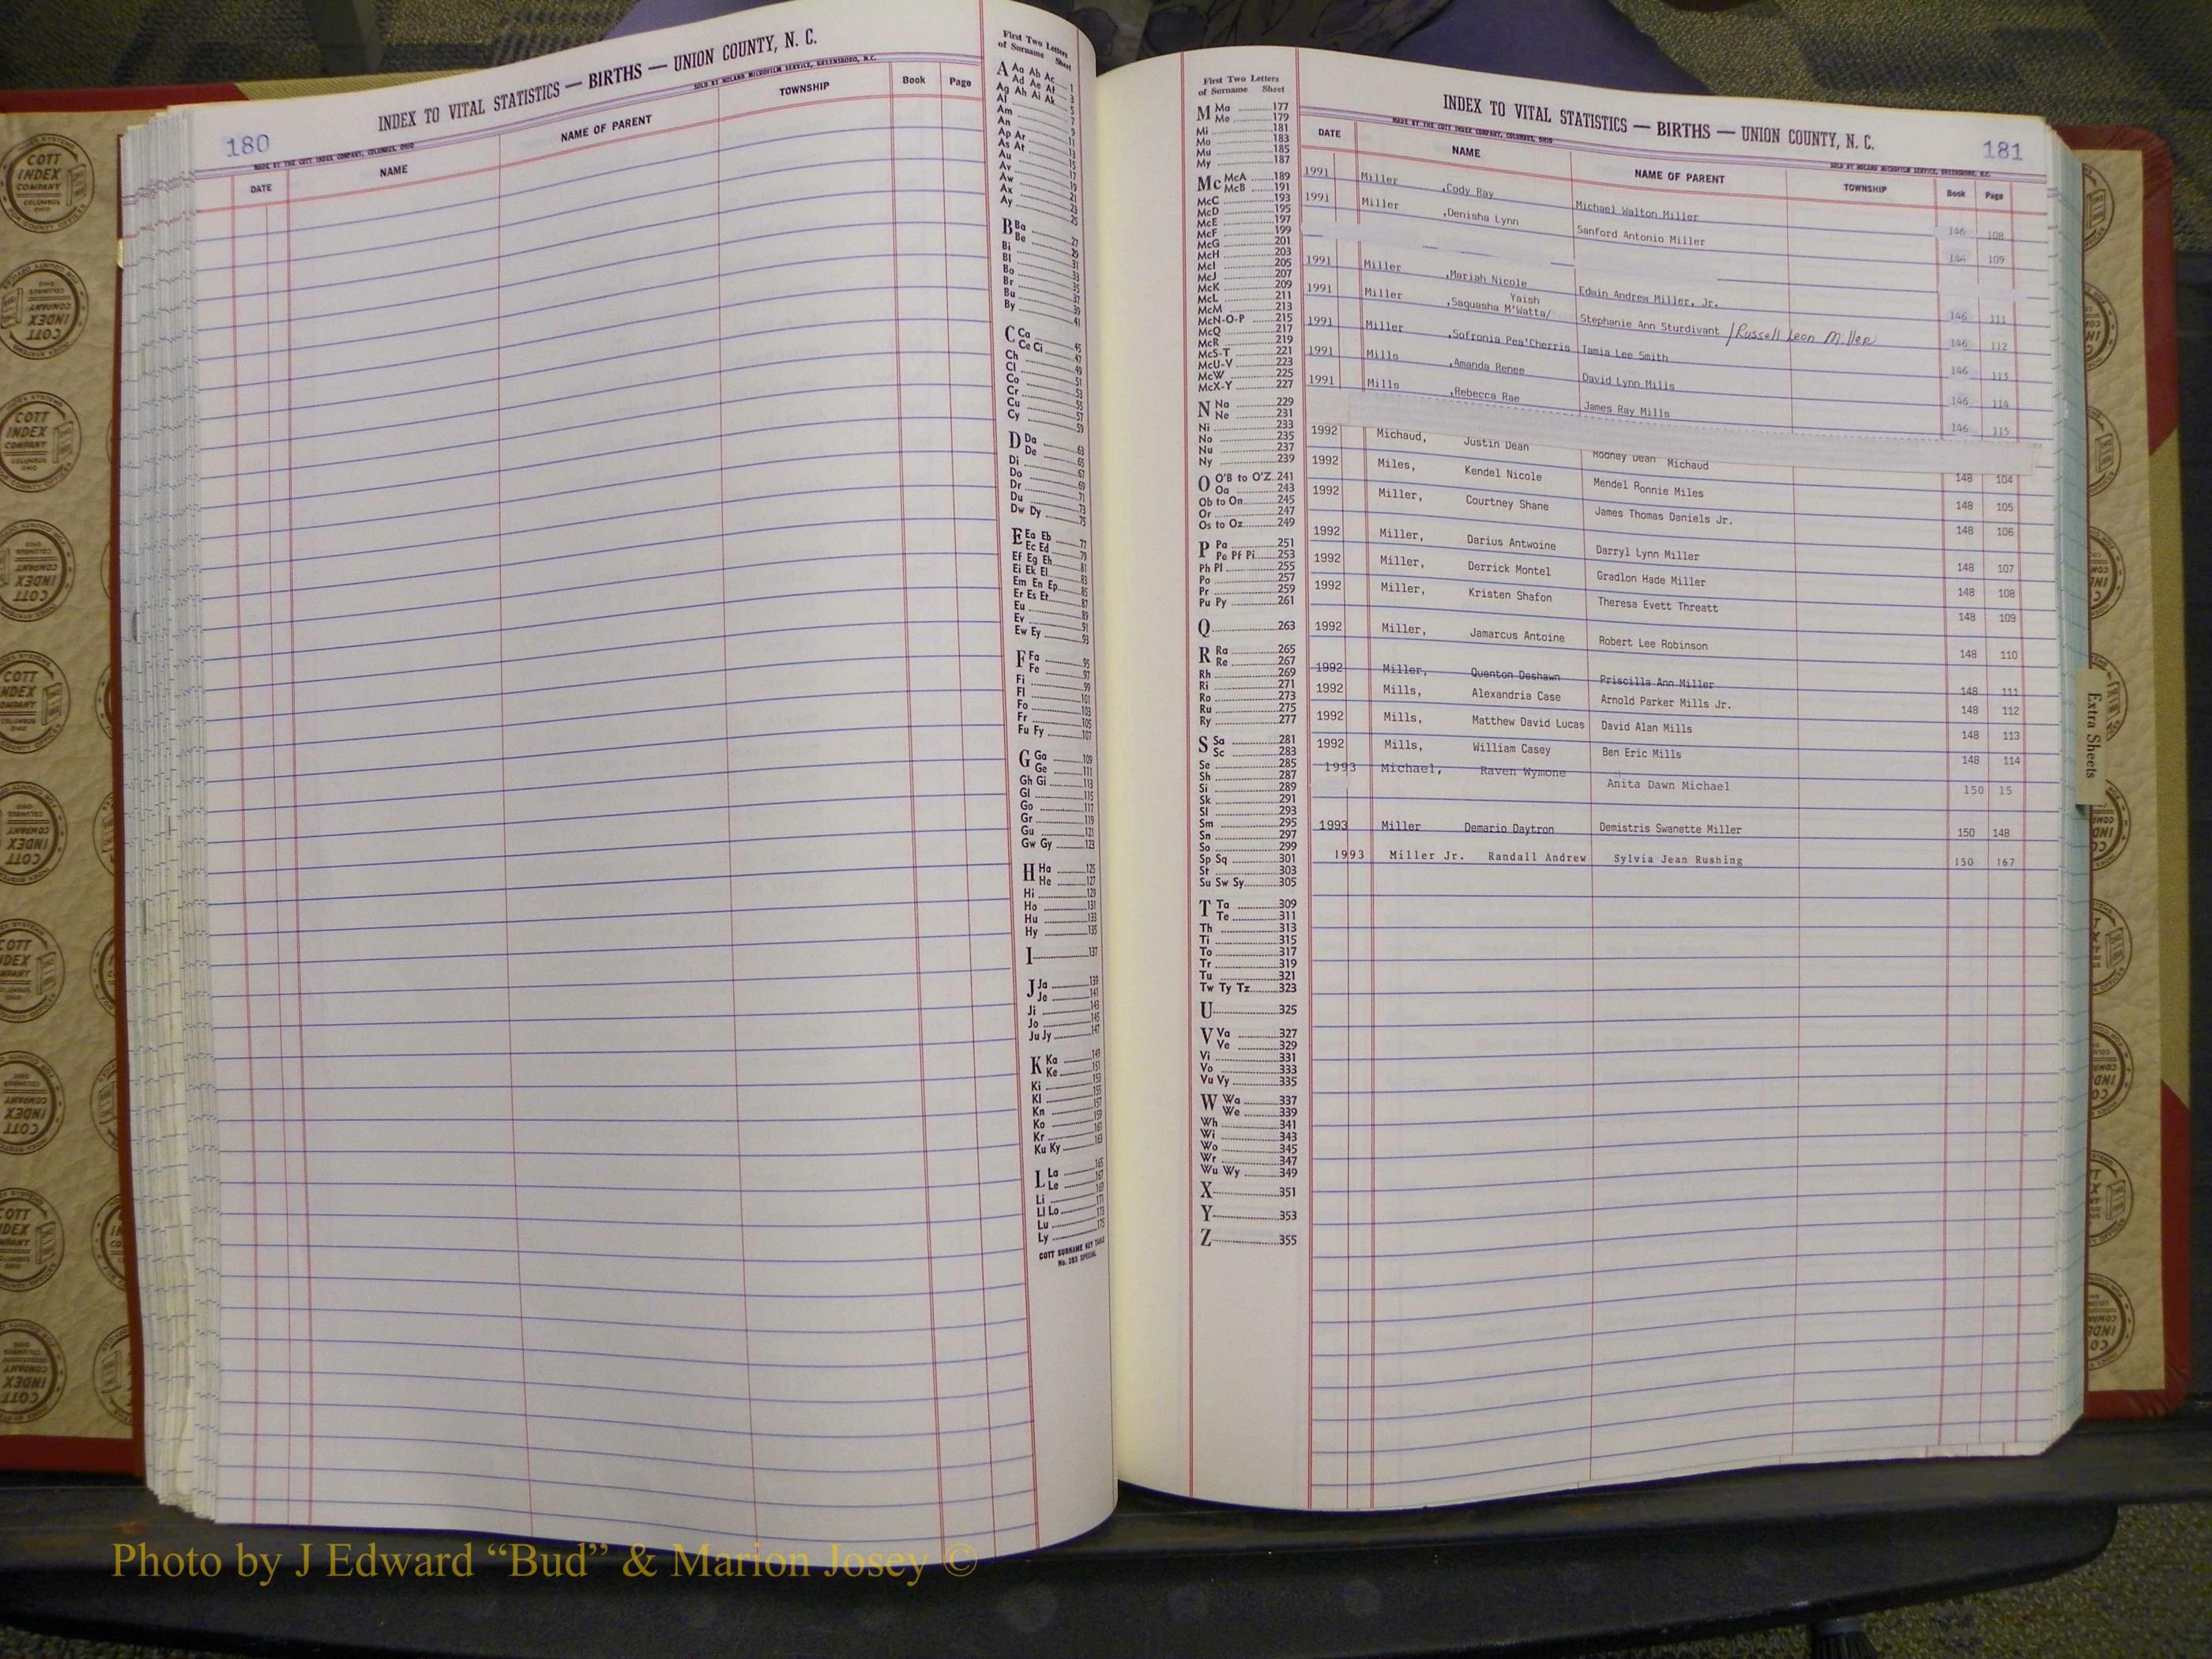 180
INDEX TO VITAL STATISTICS — BIRTHS — UNION COUNTY, N. C.
MADE BY THE COTT INDEX COMPANY, COLUMBUS, OHIO
SOLD BY NOLAND MICROFILM SERVICE, GREENSBORO, N.C.
DATE NAME NAME OF PARENT TOWNSHIP Book Page
First Two Letters
of Surname Sheet
A Aa Ab Ac 1
Ad Ae Af 3
Ag Ah Ai Ak 5
Al 7
Am 9
An 11
Ap Ar 13
As At 15
Au 17
Av 19
Aw 21
Ax 23
Ay 25
B Ba 27
Be 29
Bi 31
Bl 33
Bo 35
Br 37
Bu 39
By 41
C Ca 45
Ce Ci 47
Ch 49
Cl 51
Co 53
Cr 55
Cu 57
Cy 59
D Da 63
De 65
Di 67
Do 69
Dr 71
Du 73
Dw Dy 75
E Ea Eb 77
Ec Ed 79
Ef Eg Eh 81
Ei Ek El 83
Em En Ep 85
Er Es Et 87
Eu 89
Ev 91
Ew Ey 93
F Fa 95
Fe 97
Fi 99
Fl 101
Fo 103
Fr 105
Fu Fy 107
G Ga 109
Ge 111
Gh Gi 113
Gl 115
Go 117
Gr 119
Gu 121
Gw Gy 123
H Ha 125
He 127
Hi 129
Ho 131
Hu 133
Hy 135
I 137
J Ja 139
Je 141
Ji 143
Jo 145
Ju Jy 147
K Ka 149
Ke 151
Ki 153
Kl 155
Kn 157
Ko 159
Kr 161
Ku Ky 163
L La 165
Le 167
Li 169
Ll Lo 171
Lu 173
Ly 175
COTT SURNAME KEY TABLE
No. 383 SPECIAL
First Two Letters
of Surname Sheet
M Ma 177
Me 179
Mi 181
Mo 183
Mu 185
My 187
Mc McA 189
McB 191
McC 193
McD 195
McE 197
McF 199
McG 201
McH 203
McI 205
McJ 207
McK 209
McL 211
McM 213
McN-O-P 215
McQ 217
McR 219
McS-T 221
McU-V 223
McW 225
McX-Y 227
N Na 229
Ne 231
Ni 233
No 235
Nu 237
Ny 239
O O'B to O'Z 241
Oa 243
Ob to On 245
Or 247
Os to Oz 249
P Pa 251
Pe Pf Pi 253
Ph Pl 255
Po 257
Pr 259
Pu Py 261
Q 263
R Ra 265
Re 267
Rh 269
Ri 271
Ro 273
Ru 275
Ry 277
S Sa 281
Sc 283
Se 285
Sh 287
Si 289
Sk 291
Sl 293
Sm 295
Sn 297
So 299
Sp Sq 301
St 303
Su Sw Sy 305
T Ta 309
Te 311
Th 313
Ti 315
To 317
Tr 319
Tu 321
Tw Ty Tz 323
U 325
V Va 327
Ve 329
Vi 331
Vo 333
Vu Vy 335
W Wa 337
We 339
Wh 341
Wi 343
Wo 345
Wr 347
Wu Wy 349
X 351
Y 353
Z 355
INDEX TO VITAL STATISTICS — BIRTHS — UNION COUNTY, N. C.
181
MADE BY THE COTT INDEX COMPANY, COLUMBUS, OHIO
SOLD BY NOLAND MICROFILM SERVICE, GREENSBORO, N.C.
DATE NAME NAME OF PARENT TOWNSHIP Book Page
1991 Miller ,Cody Ray Michael Walton Miller 146 108
1991 Miller ,Denisha Lynn Sanford Antonio Miller 146 109
1991 Miller ,Mariah Nicole Edwin Andrew Miller, Jr. 146 111
Yaish
1991 Miller ,Saquasha M'Watta/ Stephanie Ann Sturdivant /Russell Leon Miller 146 112
1991 Miller ,Sofronia Pea'Cherris Tamia Lee Smith 146 113
1991 Mills ,Amanda Renee David Lynn Mills 146 114
1991 Mills ,Rebecca Rae James Ray Mills 146 115
1992 Michaud, Justin Dean Rodney Dean Michaud 148 104
1992 Miles, Kendel Nicole Mendel Ronnie Miles 148 105
1992 Miller, Courtney Shane James Thomas Daniels Jr. 148 106
1992 Miller, Darius Antwoine Darryl Lynn Miller 148 107
1992 Miller, Derrick Montel Gradlon Hade Miller 148 108
1992 Miller, Kristen Shafon Theresa Evett Threatt 148 109
1992 Miller, Jamarcus Antoine Robert Lee Robinson 148 110
1992 Miller, Quenton Deshawn Priscilla Ann Miller 148 111
1992 Mills, Alexandria Case Arnold Parker Mills Jr. 148 112
1992 Mills, Matthew David Lucas David Alan Mills 148 113
1992 Mills, William Casey Ben Eric Mills 148 114
1993 Michael, Raven Wymone Anita Dawn Michael 150 15
1993 Miller Demario Daytron Demistris Swanette Miller 150 148
1993 Miller Jr. Randall Andrew Sylvia Jean Rushing 150 167
Extra Sheets
COTT
INDEX
COMPANY
COLUMBUS
OHIO
Photo by J Edward “Bud” & Marion Josey ©